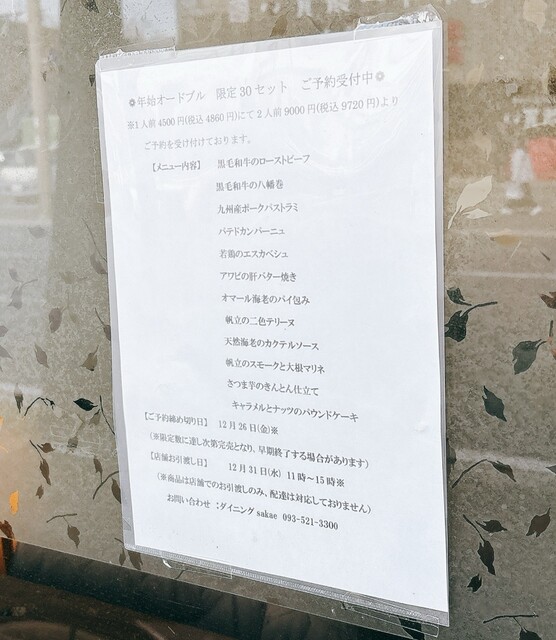 ❁年始オードブル 限定30セット ご予約受付中❁
※1人前4500円(税込4860円)にて2人前9000円(税込9720円)より
ご予約を受け付けております。
【メニュー内容】 黒毛和牛のローストビーフ
黒毛和牛の八幡巻
九州産ポークパストラミ
パテドカンパーニュ
若鶏のエスカベシュ
アワビの肝バター焼き
オマール海老のパイ包み
帆立の二色テリーヌ
天然海老のカクテルソース
帆立のスモークと大根マリネ
さつま芋のきんとん仕立て
キャラメルとナッツのパウンドケーキ
【ご予約締め切り日】 12月26日(金)※
(※限定数に達し次第完売となり、早期終了する場合があります)
【店舗お引渡し日】 12月31日(水) 11時～15時※
(※商品は店舗でのお引渡しのみ、配達は対応しておりません)
お問い合わせ :ダイニング sakae 093-521-3300